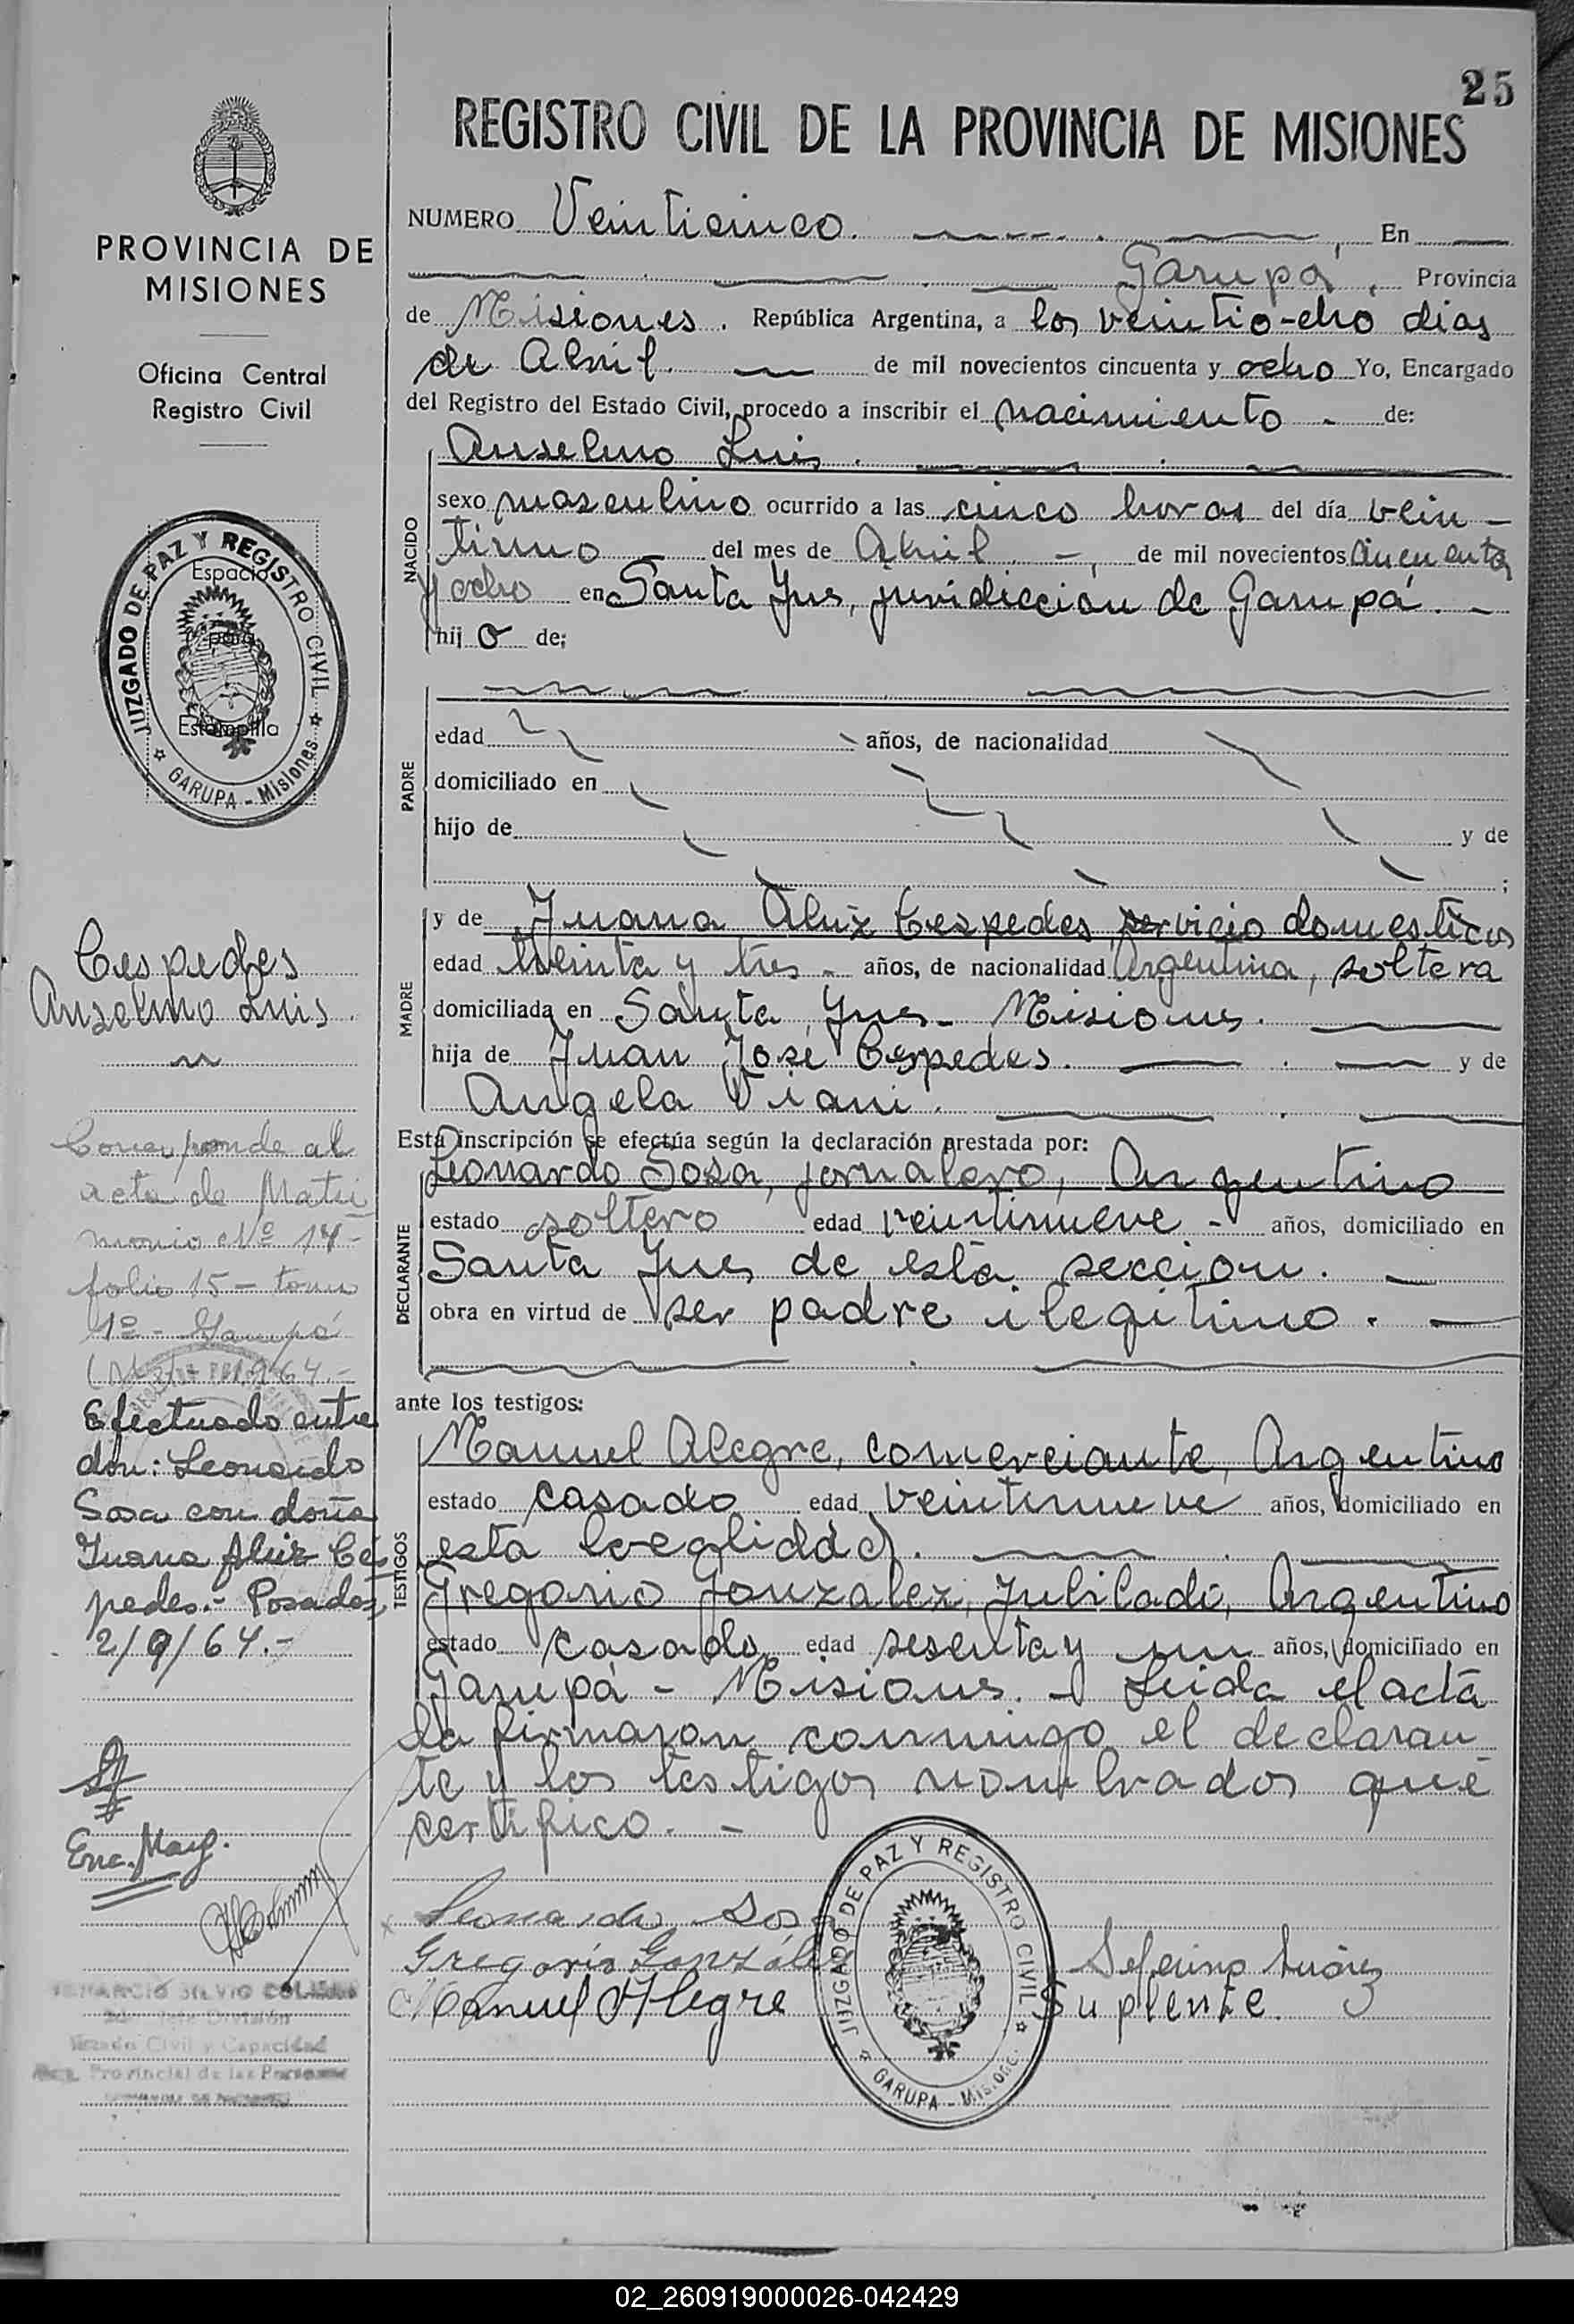 25
REGISTRO CIVIL DE LA PROVINCIA DE MISIONES
PROVINCIA DE
MISIONES
Oficina Central
Registro Civil
JUZGADO DE PAZ Y REGISTRO CIVIL
GARUPA - Misiones
Espacio
para
Estampilla
Cespedes
Anselmo Luis.
Corresponde al
acta de Matri
monio Nº 17-
folio 15 - tomo
1º - Garupá
1964.-
Efectuado entre
don: Leonardo
Sosa con doña
Juana Aluz Cés
pedes.- Posadas,
2/9/64.-
Enc. Marg.
División
Estado Civil y Capacidad
Reg. Provincial de las Personas
NUMERO Veinticinco. En
Garupá, Provincia
de Misiones. República Argentina, a los veintio-cho dias
de Abril. de mil novecientos cincuenta y ocho Yo, Encargado
del Registro del Estado Civil, procedo a inscribir el nacimiento - de:
NACIDO
Anselmo Luis.
sexo masculino ocurrido a las cinco horas del día vein-
tiuno del mes de Abril -, de mil novecientos cincuenta
y ocho en Santa Ines, juridiccion de Garupá. -
hijo de;
PADRE
edad años, de nacionalidad
domiciliado en
hijo de y de
;
MADRE
y de Juana Aluz Cespedes servicio domesticos
edad treinta y tres - años, de nacionalidad Argentina, soltera
domiciliada en Santa Ines - Misiones.
hija de Juan José Cespedes. y de
Angela Viani.
Esta inscripción se efectúa según la declaración prestada por:
DECLARANTE
Leonardo Sosa, jornalero, Argentino
estado soltero edad veintinueve - años, domiciliado en
Santa Ines de esta seccion. -
obra en virtud de ser padre ilegitimo. -
ante los testigos:
TESTIGOS
Manuel Alegre, comerciante, Argentino
estado casado edad veintinueve años, domiciliado en
esta localidad.
Gregorio Gonzalez, Jubilado, Argentino
estado casado edad sesenta y un años, domiciliado en
Garupá - Misiones. - Leida el acta
la firmaron conmigo el declaran
te y los testigos nombrados que
certifico. -
Leonardo Sosa
Gregorio González
Manuel Alegre
Seferino Suárez
Suplente.
JUZGADO DE PAZ Y REGISTRO CIVIL
GARUPA - Misiones
02_260919000026-042429